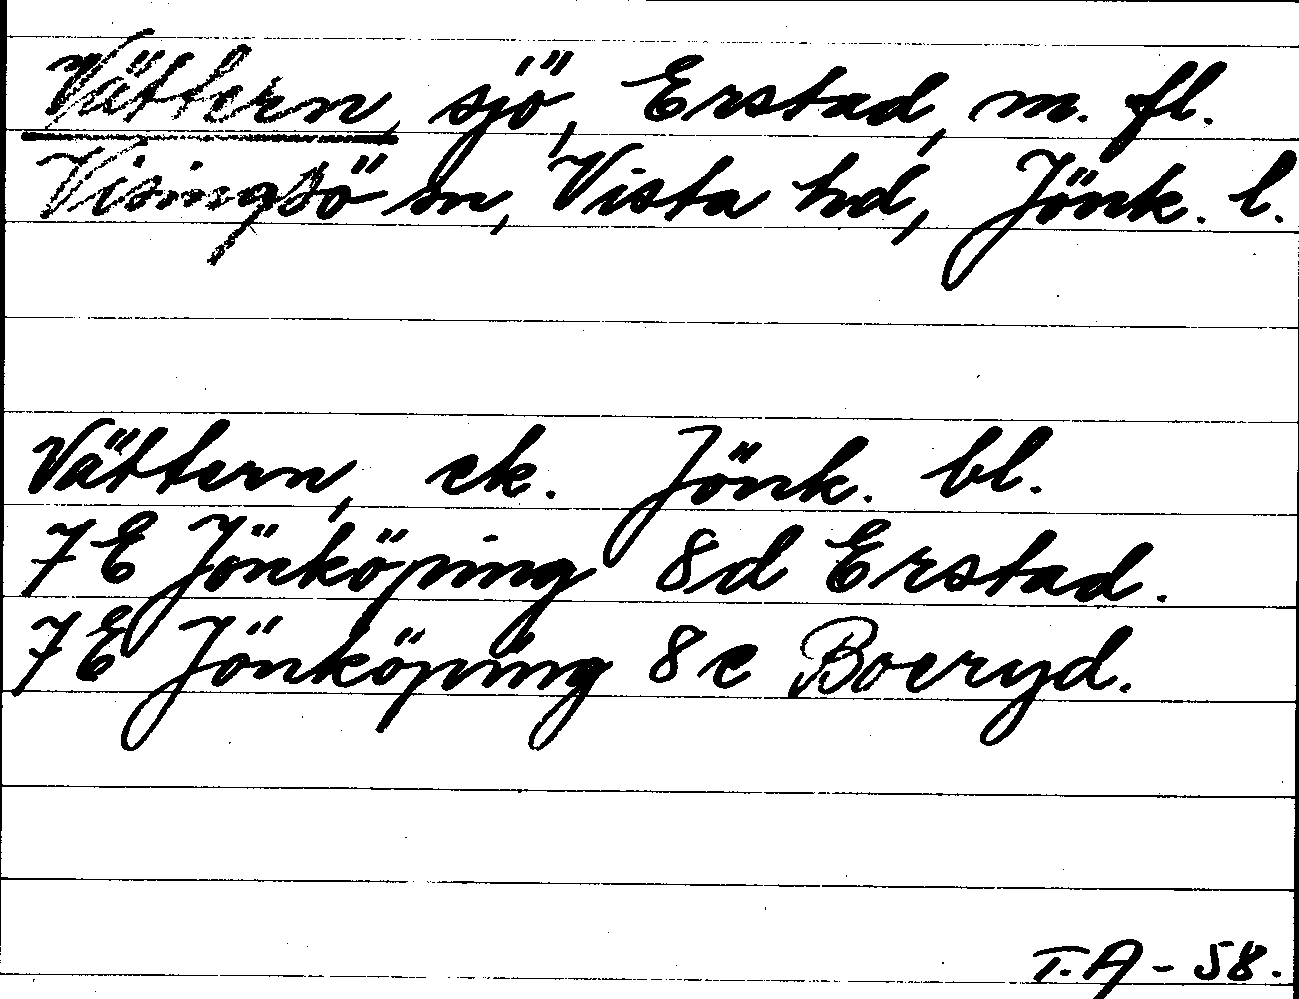 Vättern, sjö, Erstad, m. fl.
Visingsö sn, Vista hd, Jönk. l.
Vättern, ek. Jönk. bl.
7E Jönköping 8d Erstad.
7E Jönköping 8e Boeryd.
T.A - 58.